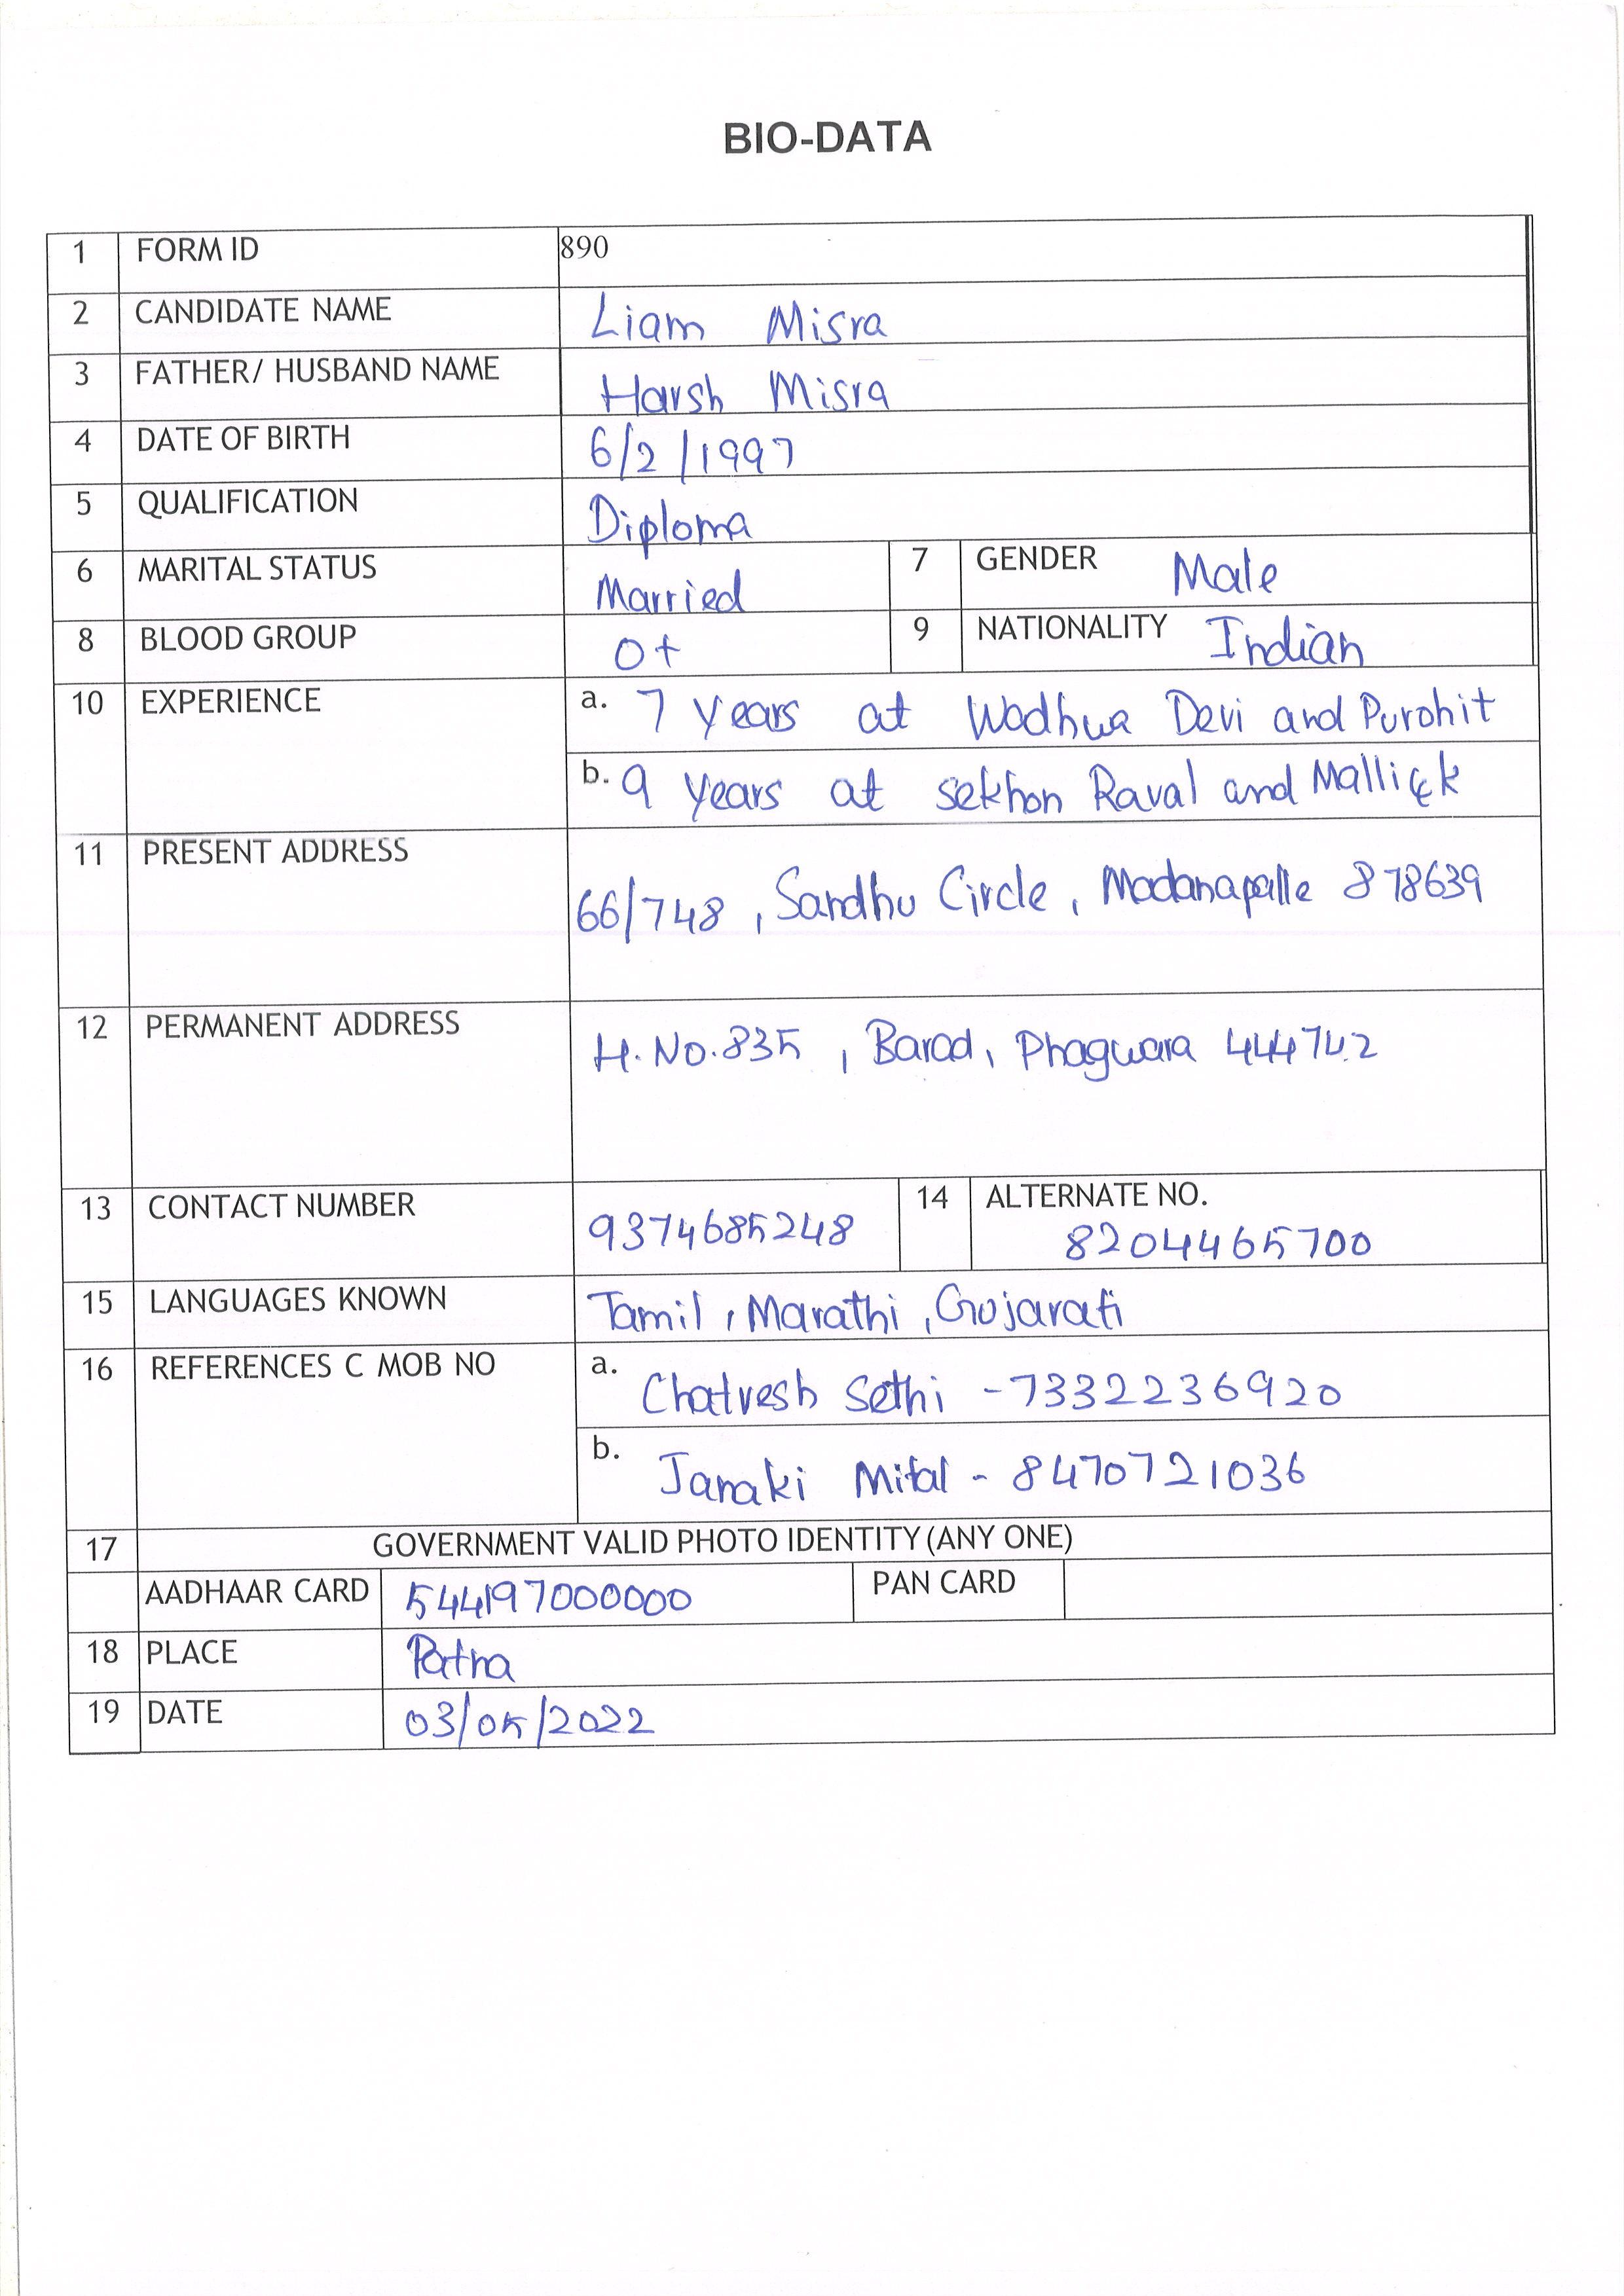 BIO-DATA
1 FORM ID 890
2 CANDIDATE NAME Liam Misra
3 FATHER/ HUSBAND NAME Harsh Misra
4 DATE OF BIRTH 6/2/1997
5 QUALIFICATION Diploma
6 MARITAL STATUS Married 7 GENDER Male
8 BLOOD GROUP O+ 9 NATIONALITY Indian
10 EXPERIENCE a. 7 years at Wadhwa Devi and Purohit
b. 9 years at sekhon Raval and Mallick
11 PRESENT ADDRESS
66/748, Sandhu Circle, Madanapalle 878639
12 PERMANENT ADDRESS
H.No.835, Barad, Phagwara 444742
13 CONTACT NUMBER 9374685248 14 ALTERNATE NO.
8204465700
15 LANGUAGES KNOWN Tamil, Marathi, Gujarati
16 REFERENCES C MOB NO a. Chatresh Sethi - 7332236920
b. Janaki Mital - 8470721036
17 GOVERNMENT VALID PHOTO IDENTITY (ANY ONE)
AADHAAR CARD 544197000000 PAN CARD
18 PLACE Patna
19 DATE 03/05/2022